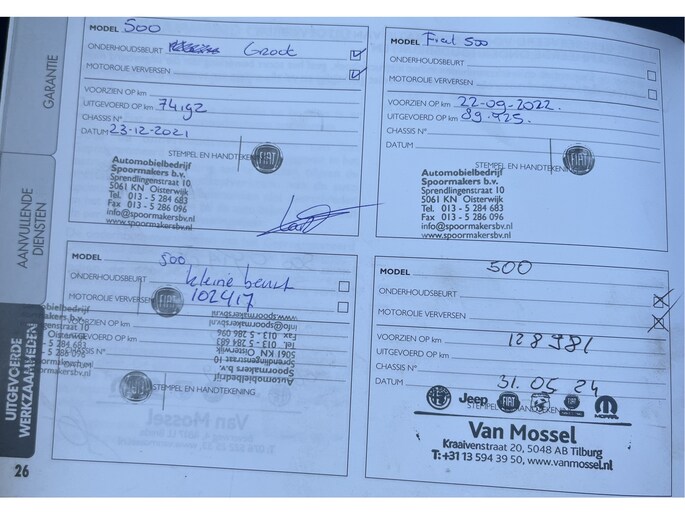 GARANTIE
AANVULLENDE
DIENSTEN
UITGEVOERDE
WERKZAAMHEDEN
26
MODEL 500
ONDERHOUDSBEURT Groot
MOTOROLIE VERVERSEN
VOORZIEN OP km
UITGEVOERD OP km 74192
CHASSIS N°
DATUM 23-12-2021
STEMPEL EN HANDTEKENING
FIAT
Automobielbedrijf
Spoormakers b.v.
Sprendlingenstraat 10
5061 KN Oisterwijk
Tel. 013 - 5 284 683
Fax 013 - 5 286 096
info@spoormakersbv.nl
www.spoormakersbv.nl
MODEL Fiat 500
ONDERHOUDSBEURT
MOTOROLIE VERVERSEN
VOORZIEN OP km 22-09-2022.
UITGEVOERD OP km 89.925.
CHASSIS N°
DATUM
STEMPEL EN HANDTEKENING
FIAT
Automobielbedrijf
Spoormakers b.v.
Sprendlingenstraat 10
5061 KN Oisterwijk
Tel. 013 - 5 284 683
Fax 013 - 5 286 096
info@spoormakersbv.nl
www.spoormakersbv.nl
MODEL 500
ONDERHOUDSBEURT kleine beurt
MOTOROLIE VERVERSEN 102417
FIAT
VOORZIEN OP km
UITGEVOERD OP km
CHASSIS N°
DATUM
STEMPEL EN HANDTEKENING
Automobielbedrijf
Spoormakers b.v.
Sprendlingenstraat 10
5061 KN Oisterwijk
Tel. 013 - 5 284 683
Fax 013 - 5 286 096
info@spoormakersbv.nl
www.spoormakersbv.nl
Van Mossel
MODEL 500
ONDERHOUDSBEURT
MOTOROLIE VERVERSEN
VOORZIEN OP km 128981
UITGEVOERD OP km
CHASSIS N°
DATUM 31.05 24
STEMPEL EN HANDTEKENING
Jeep FIAT MOPAR
Van Mossel
Kraaivenstraat 20, 5048 AB Tilburg
T: +31 13 594 39 50, www.vanmossel.nl